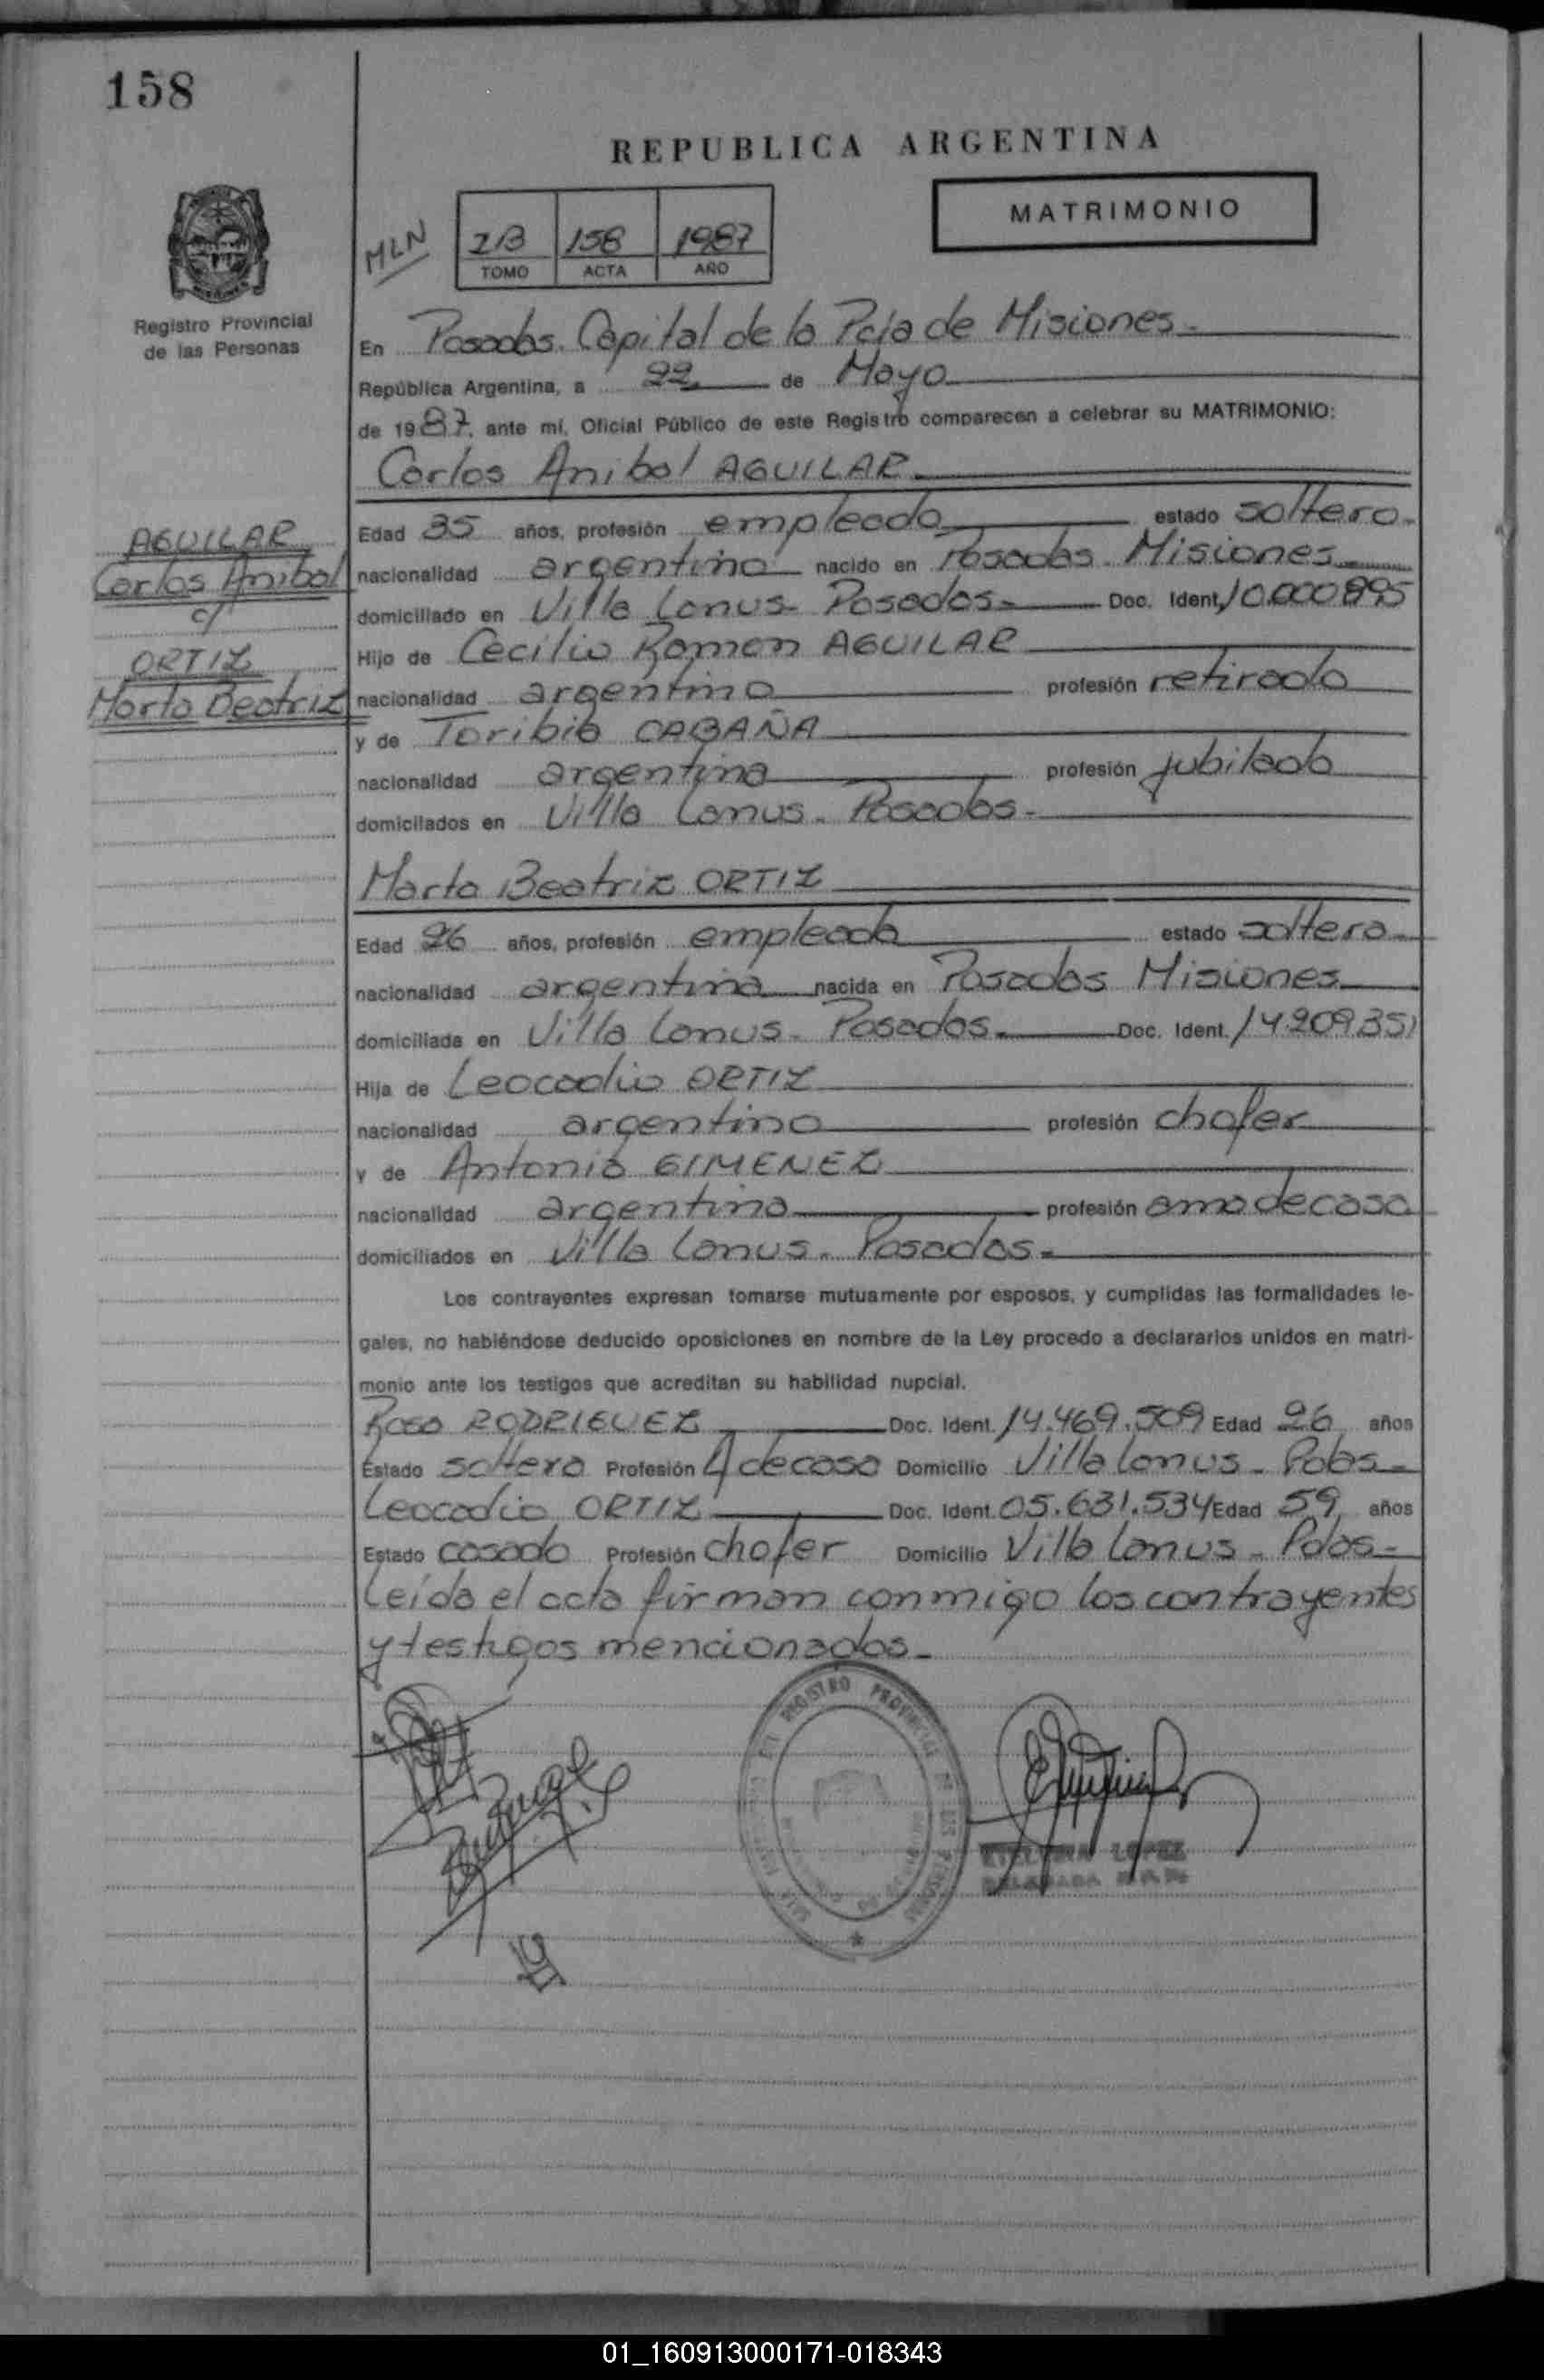 158
REPUBLICA ARGENTINA
MATRIMONIO
MLN
158 1987
TOMO ACTA AÑO
Registro Provincial
de las Personas
En Posadas. Capital de la Pcia de Misiones.
República Argentina, a 22 de Mayo
de 1987, ante mí, Oficial Público de este Registro comparecen a celebrar su MATRIMONIO:
Carlos Anibal AGUILAR
AGUILAR
Carlos Anibal
c/
ORTIZ
Marta Beatriz
Edad 35 años, profesión empleado estado soltero.
nacionalidad argentino nacido en Posadas. Misiones
domiciliado en Villa Lanus. Posadas. Doc. Ident. 10.000895
Hijo de Cecilio Ramon AGUILAR
nacionalidad argentino profesión retirado
y de Toribia CABAÑA
nacionalidad argentina profesión jubilada
domicilados en Villa Lanus. Posadas.
Marta Beatriz ORTIZ
Edad 26 años, profesión empleada estado soltera.
nacionalidad argentina nacida en Posadas Misiones
domiciliada en Villa Lanus. Posadas. Doc. Ident. 14.209.351
Hija de Leocadio ORTIZ
nacionalidad argentino profesión chofer
y de Antonia GIMENEZ
nacionalidad argentina profesión ama de casa
domiciliados en Villa Lanus. Posadas.
Los contrayentes expresan tomarse mutuamente por esposos, y cumplidas las formalidades le-
gales, no habiéndose deducido oposiciones en nombre de la Ley procedo a declararlos unidos en matri-
monio ante los testigos que acreditan su habilidad nupcial.
Rosa RODRIGUEZ Doc. Ident. 14.469.509 Edad 26 años
Estado soltera Profesión A de casa Domicilio Villa Lanus. Pdas.
Leocadio ORTIZ Doc. Ident. 05.631.534 Edad 59 años
Estado casado Profesión chofer Domicilio Villa Lanus. Pdas.
Leída el acta firman conmigo los contrayentes
y testigos mencionados.
REGISTRO PROVINCIAL DE LAS PERSONAS
LOPEZ
01_160913000171-018343